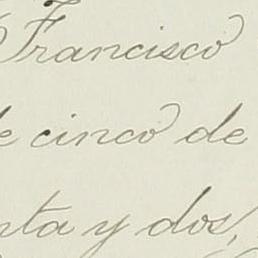 Francisco
de cinco de
nta y dos,